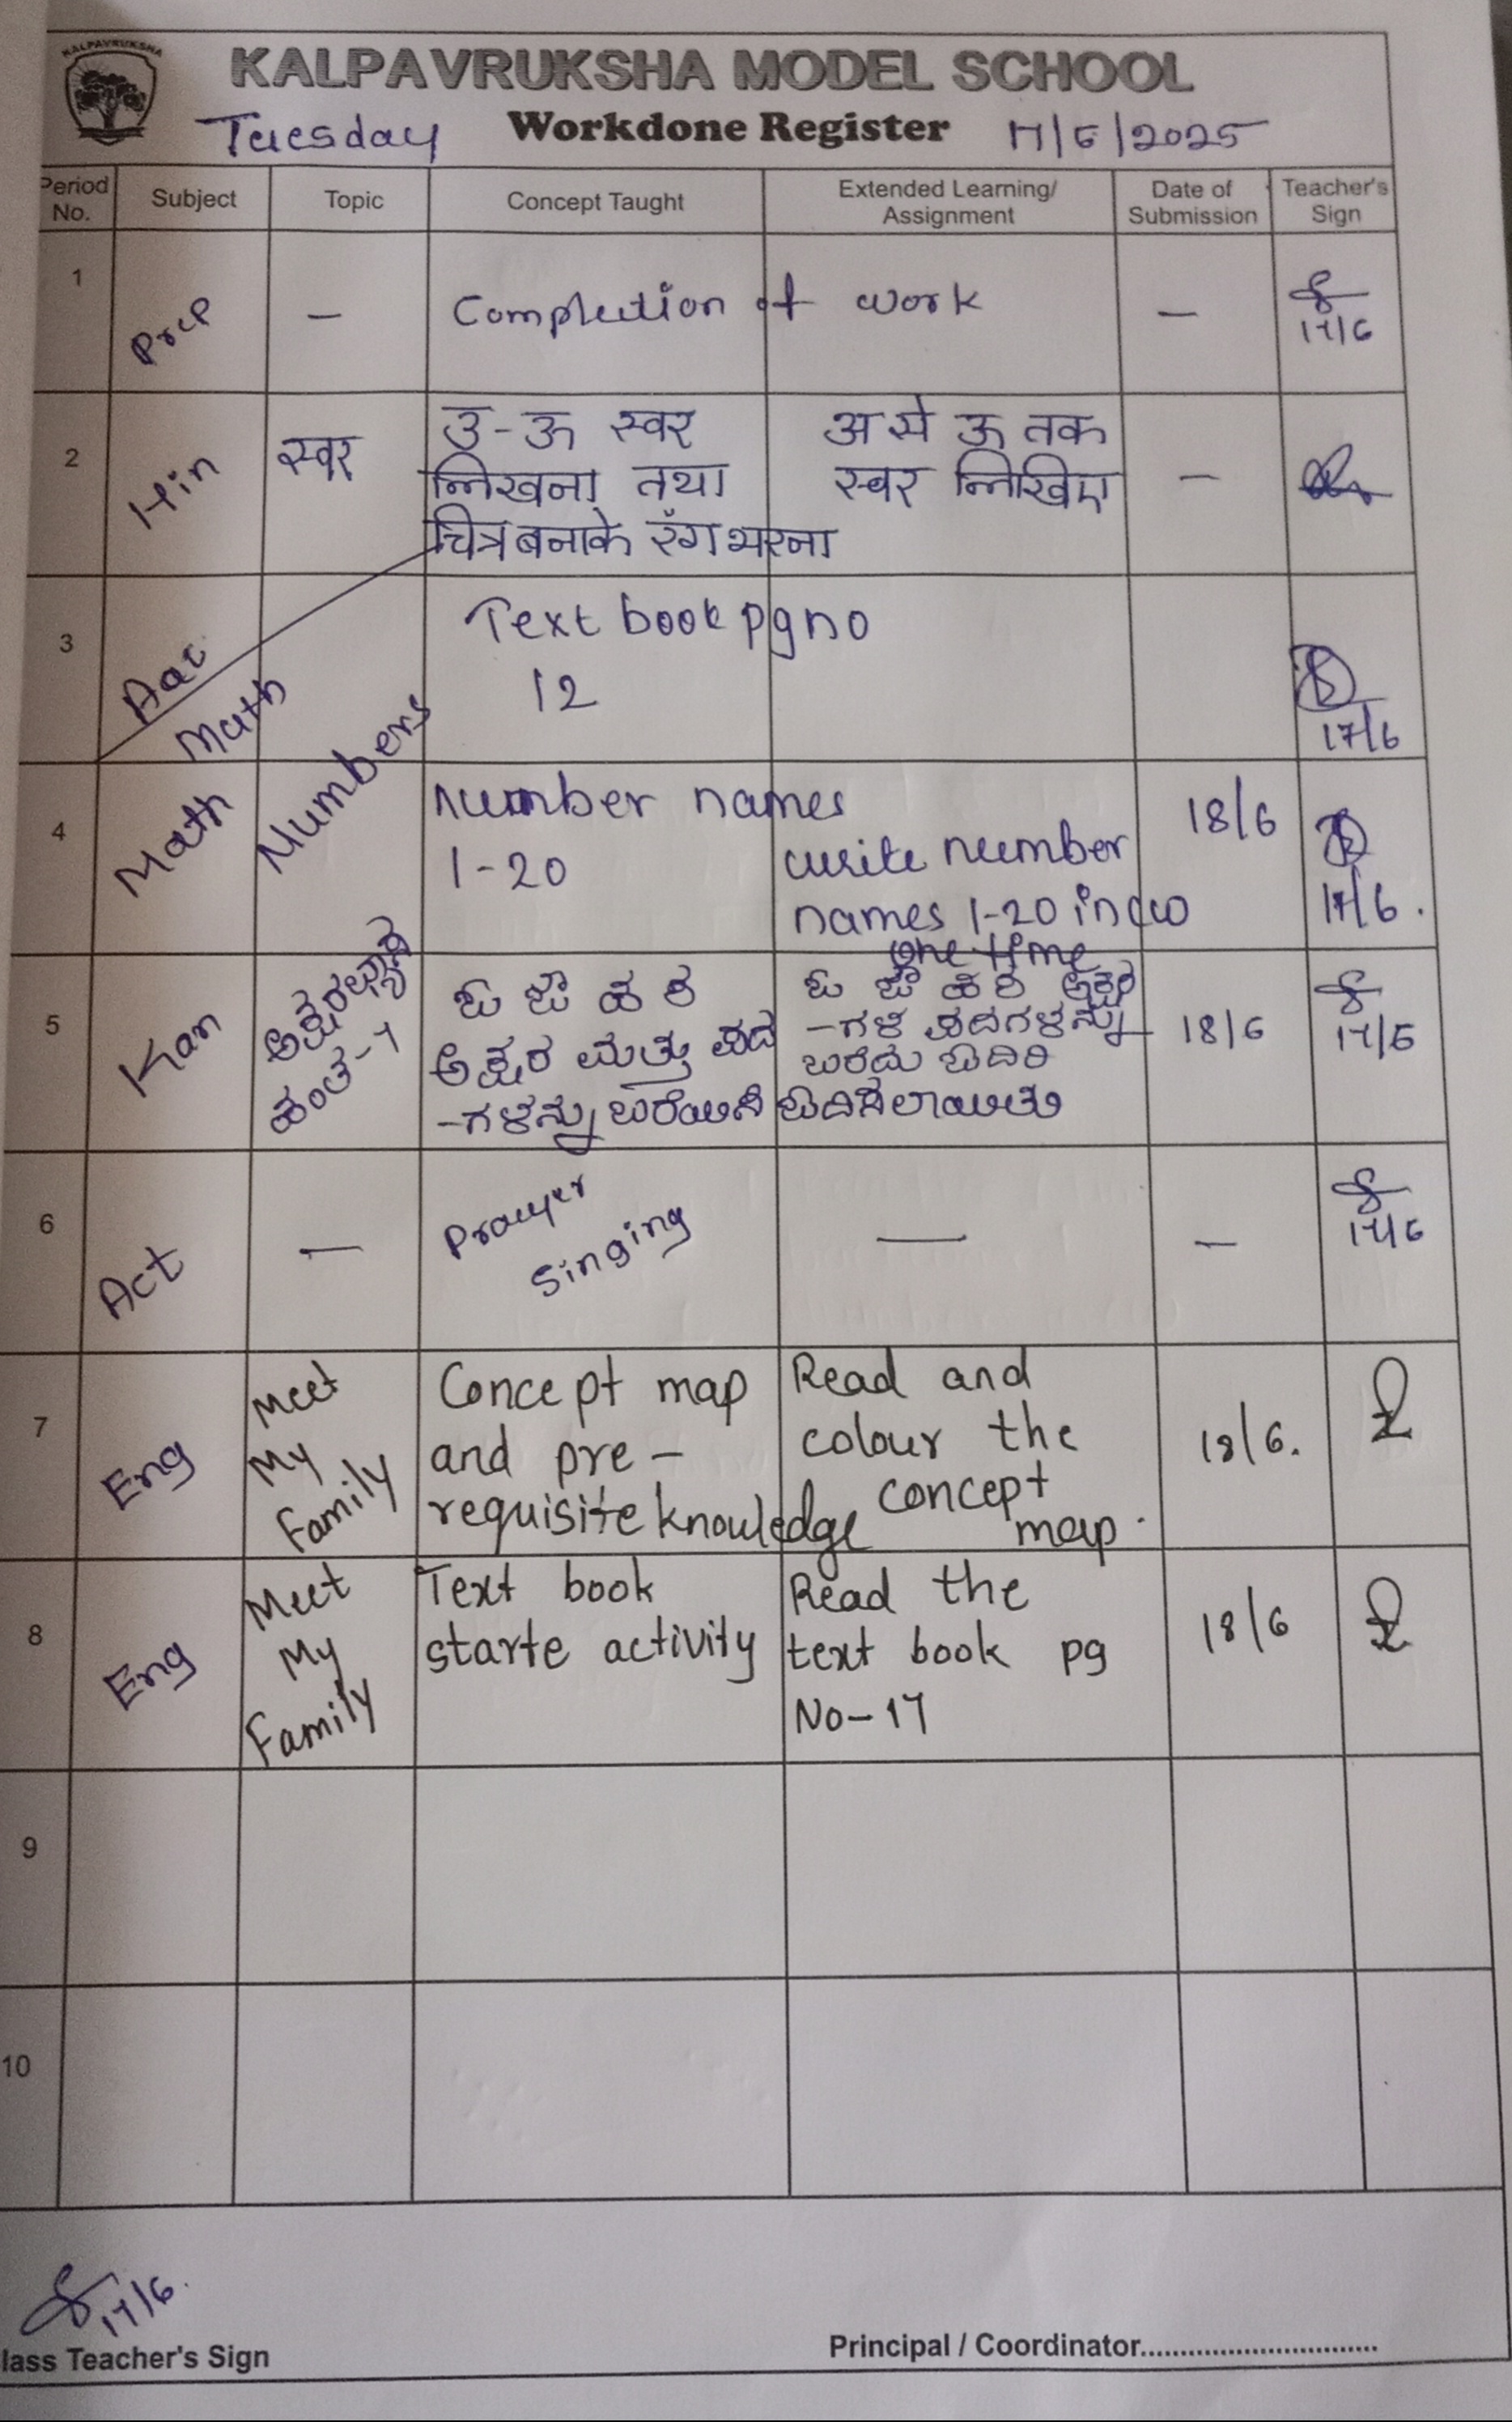 KALPAVRUKSHA
KALPAVRUKSHA MODEL SCHOOL
Tuesday Workdone Register 17/6/2025
Period No. Subject Topic Concept Taught Extended Learning/ Assignment Date of Submission Teacher's Sign
1 Prep — Complection of work — 17/6
2 Hin स्वर उ-ऊ स्वर अ से ऊ तक —
लिखना तथा स्वर लिखिए
चित्र बनाके रंग भरना
3 Text book pg no
Math 12
17/6
4 Math Numbers Number names 18/6
1-20 write number
names 1-20 in cw 17/6.
one time
5 Kan ಹಂತ-1 ಅಕ್ಷರ ಮತ್ತು ಪದ 18/6 17/6
-ಗಳ ಪದಗಳನ್ನು
ಬರೆದು ಓದಿರಿ
-ಗಳನ್ನು ಬರೆಯಿಸಿ ಓದಿಸಲಾಯಿತು
6 Act — Prayer — — 17/6
Singing
7 Eng Meet Concept map Read and 18/6.
My and pre- colour the
Family requisite knowledge concept
map.
8 Eng Meet Text book Read the 18/6
My starte activity text book pg
Family No-17
9
10
17/6.
lass Teacher's Sign Principal / Coordinator..............................